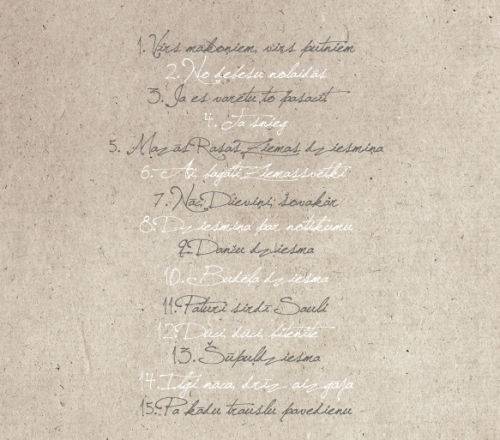 1. Virs mākoņiem, virs putniem
2. No debesu nolaidās
3. Ja es varētu to pasacīt
4. Tā snieg
5. Mazās Rasas Ziemas dziesmiņa
6. Ai, bagāti Ziemassvētki
7. Nāc, Dieviņi, šovakar
8. Dziesmiņa par notikumu
9. Danču dziesma
10. Budēļa dziesma
11. Paturi sirdī Sauli
12. Dūci dūci bitenīte
13. Šūpuļdziesma
14. Ilgi nāca, drīz aizgāja
15. Pa kādu trauslu pavedienu